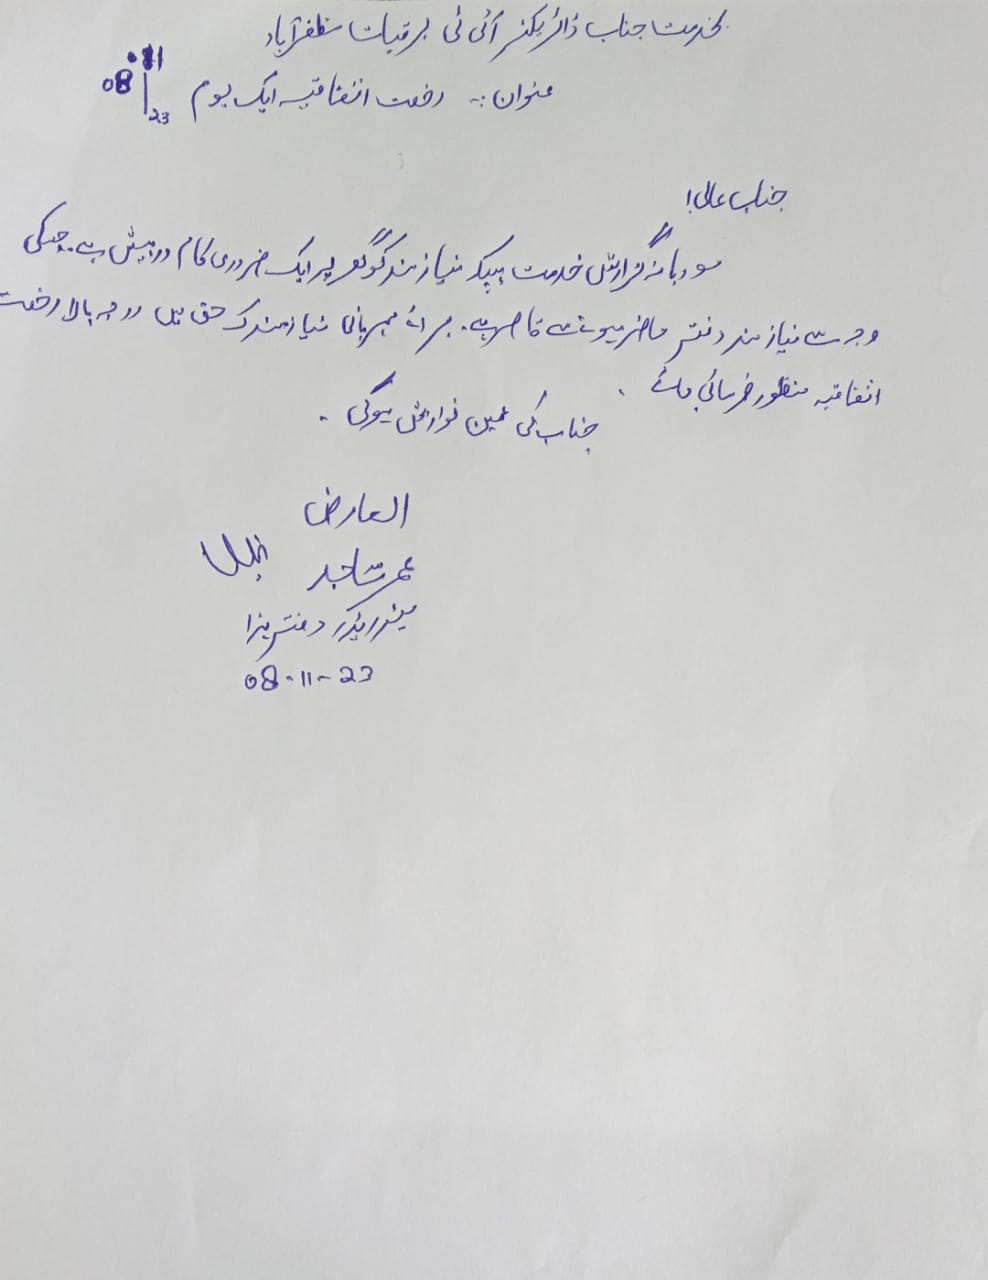 بخدمت جناب ڈائریکٹر آئی ٹی برقیات مظفرآباد
عنوان :۔ رخصت اتفاقیہ ایک یوم 08/11/23
جناب عالی!
مودبانہ گزارش خدمت ہیکہ نیازمند کو گھر پر ایک ضروری کام درپیش ہے۔ جسکی
وجہ سے نیازمند دفتر حاضر ہونے سے قاصر ہے۔ برائے مہربانی نیازمند کے حق میں درجہ بالا رخصت
اتفاقیہ منظور فرمائی جائے۔
جناب کی عین نوازش ہوگی۔
العارض
عمر ساجد
میٹر ریڈر دفتر ہذا
08-11-23